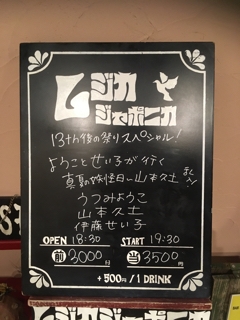 ムジカ
ジャポニカ
13th後の祭りスペシャル!
ようことせい子が行く
真夏の妖怪日い山本久土 まんだん
うつみようこ
山本久土
伊藤せい子
OPEN 18:30 START 19:30
前 3000 当 3500円
+500円/1 DRINK
ムジカジャポニカ